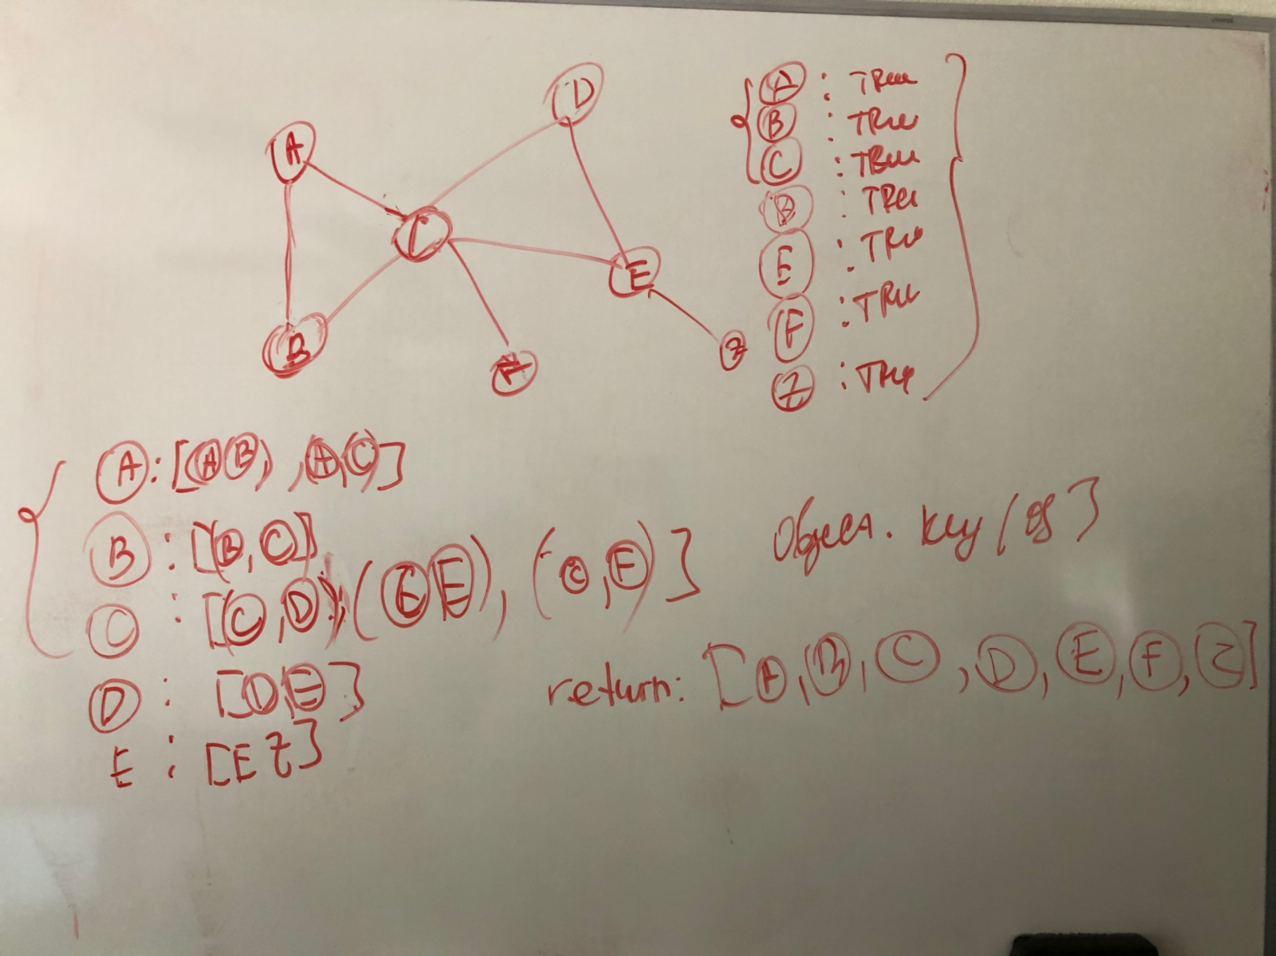 A
B
C
D
E
F
Z
A : TRUE
B : TRUE
C : TRUE
D : TRUE
E : TRUE
F : TRUE
Z : TRUE
A : [(A B), (A, C)]
B : [(B, C)]
C : [(C, D), (C E), (C, F)]
D : [D E]
E : [E Z]
Object. key(
return: [A, B, C, D, E, F, Z]